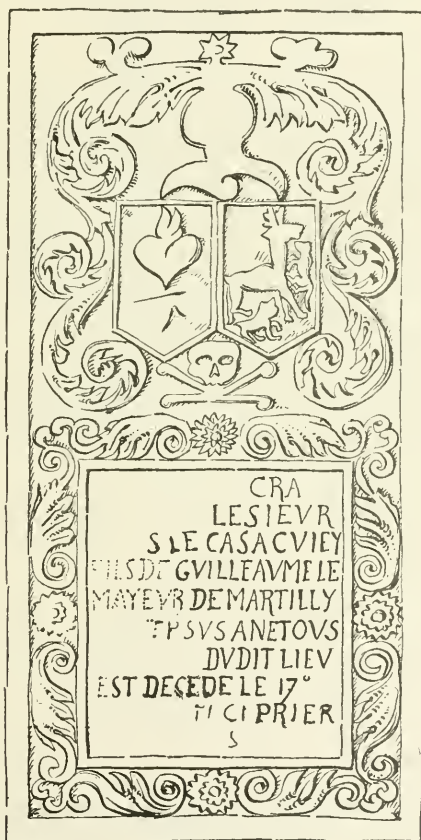 CRA
LE SIEVR
S LE CASACVIEY
FILS DE GVILLEAVME LE
MAYEVR DE MARTILLY
TPSVS ANETOVS
DVDIT LIEV
EST DECEDE LE 17°
TI CI PRIER
S